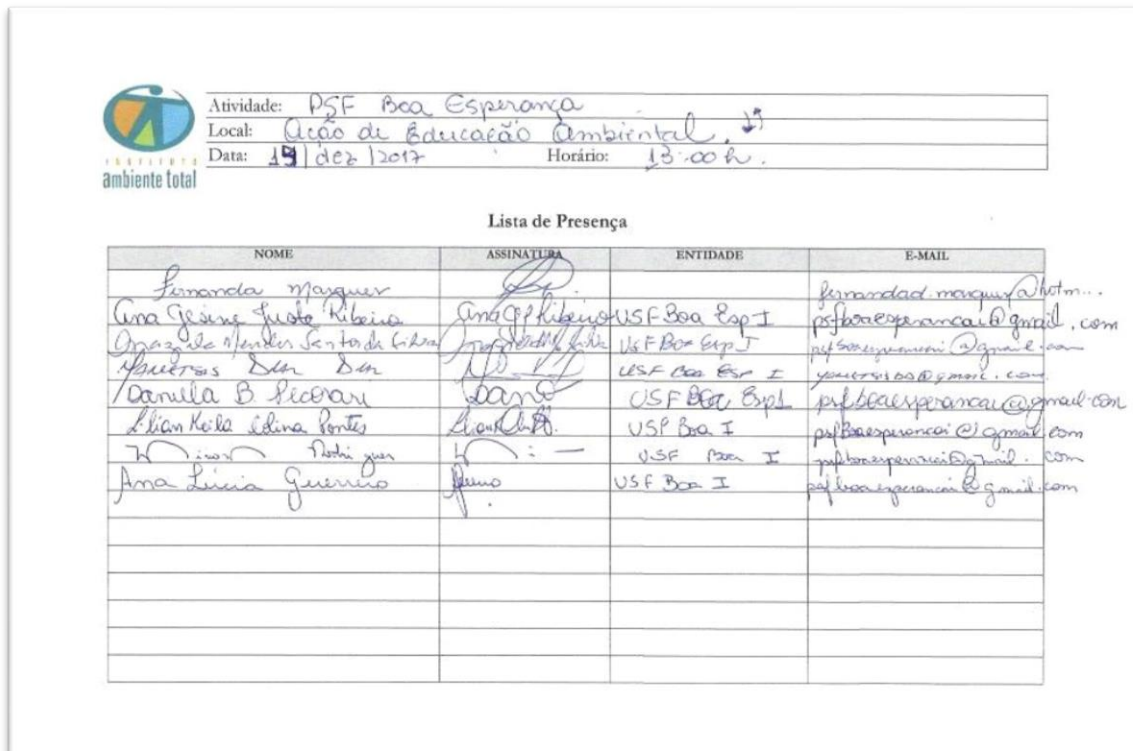 INSTITUTO
ambiente total
Atividade: PSF Boa Esperança
Local: Ação de Educação Ambiental.
Data: 19/dez/2017 Horário: 13:00 h.
Lista de Presença
NOME ASSINATURA ENTIDADE E-MAIL
Fernanda Marques fernandad.marques@hotm...
Ana Gesine Justo Ribeiro USF Boa Esp I psfboaesperancai@gmail.com
Mendes Santos da Silva USF Boa Esp I psfboaesperancai@gmail.com
USF Boa Esp I @gmail.com
Daniella B. Pecorari USF Boa Esp1 psfboaesperancai@gmail.com
Lilian Keila Pontes USF Boa I psfboaesperancai@gmail.com
Rodrigues USF Boa I psfboaesperancai@gmail.com
Ana Lúcia Guerreiro USF Boa I psfboaesperancai@gmail.com